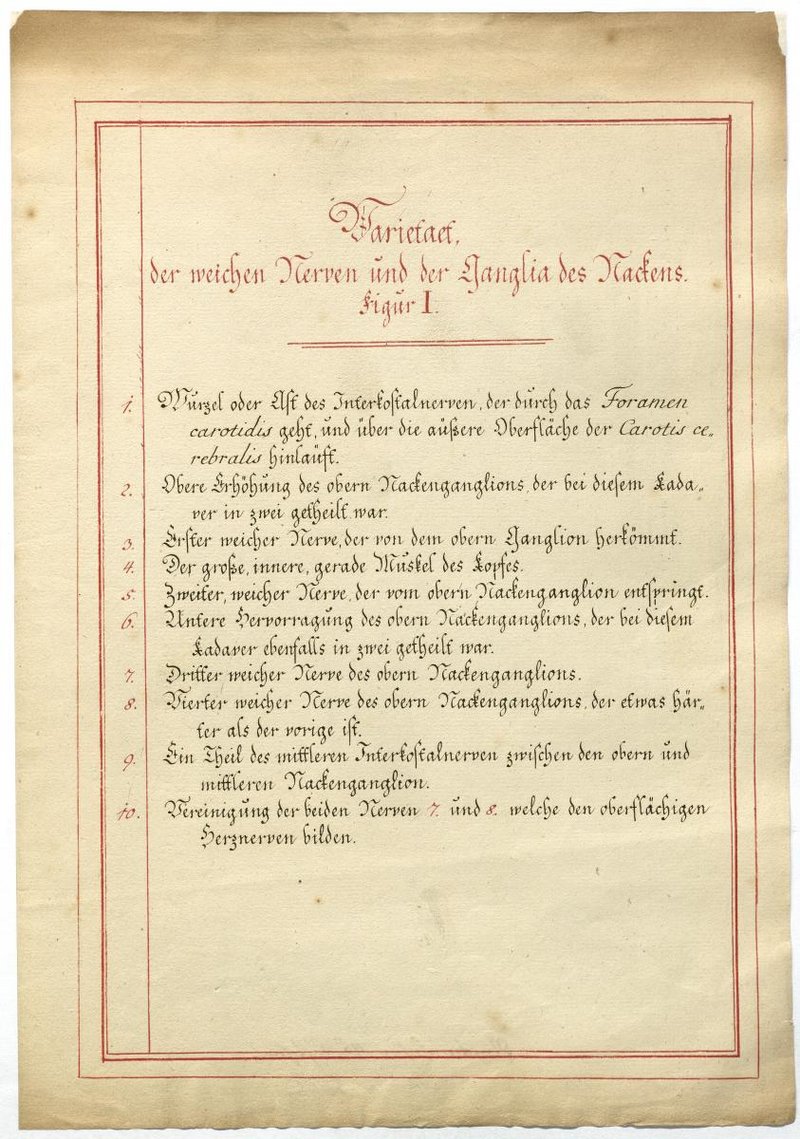 Varietaet,
der weichen Nerven und der Ganglia des Nackens.
Figur I.
1. Wurzel oder Ast des Interkostalnerven, der durch das Foramen
carotidis geht, und über die aüßere Oberfläche der Carotis ce„
rebralis hinlaüft.
2. Obere Erhöhung des obern Nackenganglions, der bei diesem Kada„
ver in zwei getheilt war.
3. Erster weicher Nerve, der von dem obern Ganglion herkömmt.
4. Der große, innere, gerade Muskel des Kopfes.
5. Zweiter, weicher Nerve, der vom obern Nackenganglion entspringt.
6. Untere Hervorragung des obern Nackenganglions, der bei diesem
Kadaver ebenfalls in zwei getheilt war.
7. Dritter weicher Nerve des obern Nackenganglions.
8. Vierter weicher Nerve des obern Nackenganglions, der etwas här„
ter als der vorige ist.
9. Ein Theil des mittleren Interkostalnerven zwischen den obern und
mittleren Nackenganglion.
10. Vereinigung der beiden Nerven 7. und 8. welche den oberflächigen
Herznerven bilden.